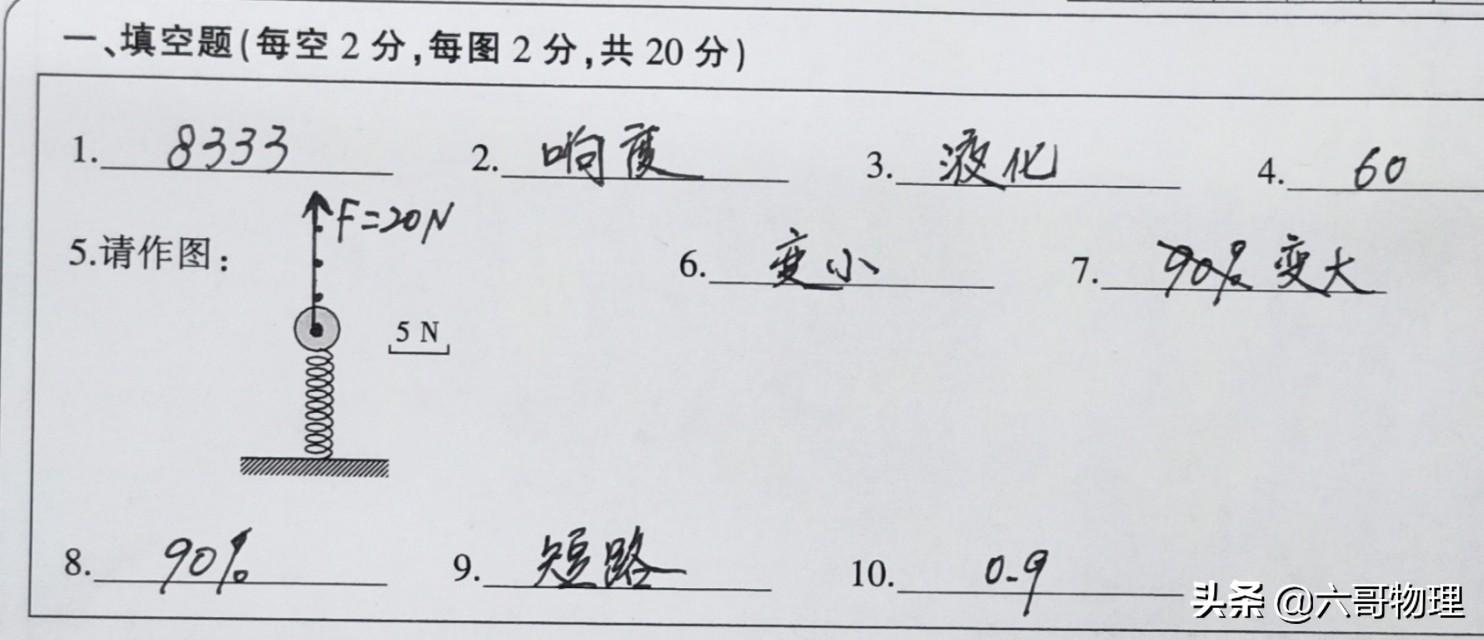 一、填空题(每空 2 分,每图 2 分,共 20 分)
1. 8333 2. 响度 3. 液化 4. 60
F=20N
5.请作图: 6. 变小 7. 90% 变大
5 N
8. 90% 9. 短路 10. 0.9
头条 @六哥物理